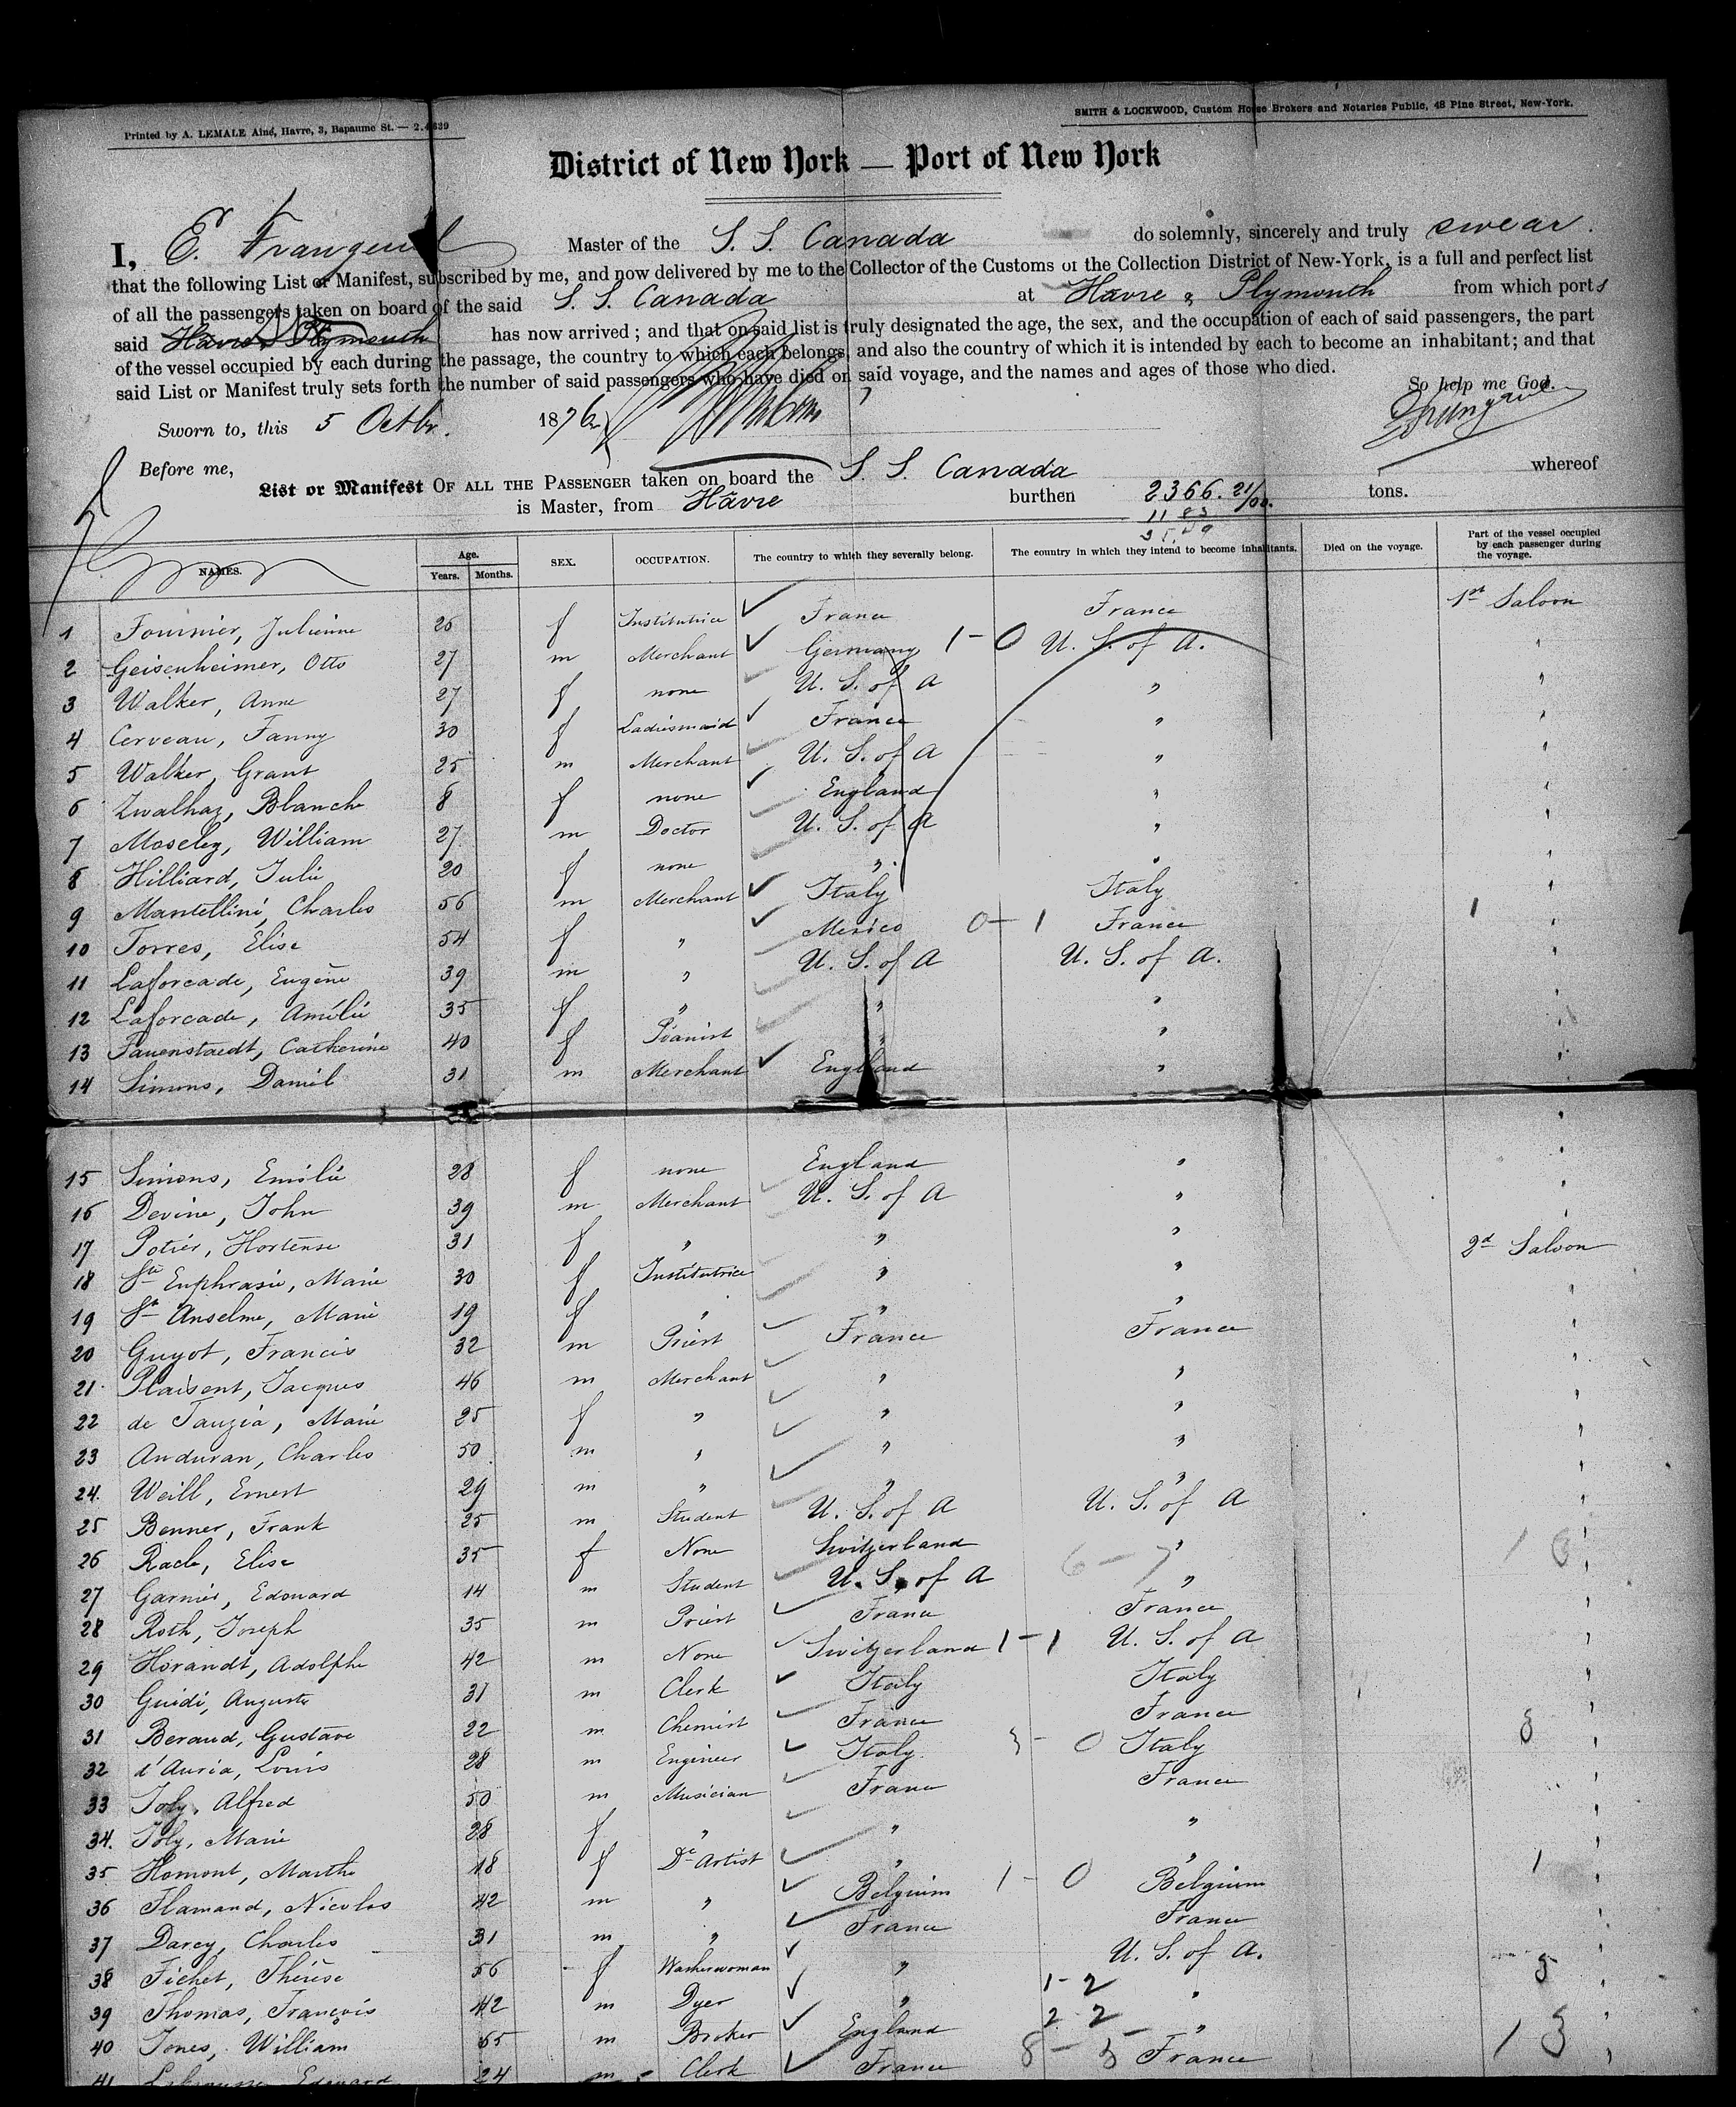 Printed by A. LEMALE Ainé, Havre, 3, Bapaume St. — 2.4639
SMITH & LOCKWOOD, Custom House Brokers and Notaries Public, 48 Pine Street, New-York.
District of New York — Port of New York
I, E. Frangeul Master of the S. S. Canada do solemnly, sincerely and truly swear.
that the following List or Manifest, subscribed by me, and now delivered by me to the Collector of the Customs of the Collection District of New-York, is a full and perfect list
of all the passengers taken on board of the said S. S. Canada at Havre & Plymouth from which ports
said Havre & Plymouth has now arrived; and that on said list is truly designated the age, the sex, and the occupation of each of said passengers, the part
of the vessel occupied by each during the passage, the country to which each belongs, and also the country of which it is intended by each to become an inhabitant; and that
said List or Manifest truly sets forth the number of said passengers who have died on said voyage, and the names and ages of those who died.
So help me God.
Sworn to, this 5 Octbr. 1876
Before me,
List or Manifest OF ALL THE PASSENGER taken on board the S. S. Canada whereof
is Master, from Havre burthen 2366. 21/00. tons.
NAMES. Age. Years. Months. SEX. OCCUPATION. The country to which they severally belong. The country in which they intend to become inhabitants. Died on the voyage. Part of the vessel occupied by each passenger during the voyage.
1 Fournier, Julienne 26 f Institutrice France France 1st Saloon
2 Geisenheimer, Otto 27 m Merchant Germany 1 - 0 U. S. of A. "
3 Walker, Anne 27 f none U. S. of A " "
4 Cerveau, Fanny 30 f Ladiesmaid France " "
5 Walker, Grant 25 m Merchant U. S. of A " "
6 Zwalhaz, Blanche 8 f none England " "
7 Moseley, William 27 m Doctor U. S. of A " "
8 Hilliard, Julie 20 f none " " "
9 Mantellini, Charles 56 m Merchant Italy Italy "
10 Torres, Elise 54 f " Mexico 0 - 1 France 1 "
11 Laforcade, Eugène 39 m " U. S. of A U. S. of A. "
12 Laforcade, Amélie 35 f " " " "
13 Fauenstaedt, Catherine 40 f Pianist " " "
14 Simons, Daniel 31 m Merchant England " "
15 Simons, Emilie 28 f none England " "
16 Devine, John 39 m Merchant U. S. of A " "
17 Potier, Hortense 31 f " " " "
18 Ste Euphrasie, Marie 30 f Institutrice " " 2d Saloon
19 St Anselme, Marie 19 f " " " "
20 Guyot, Francis 32 m Priest France France "
21 Plaisent, Jacques 46 m Merchant " " "
22 de Tauzia, Marie 25 f " " " "
23 Anduran, Charles 50 m " " " "
24. Weill, Ernest 29 m " " " "
25 Benner, Frank 25 m Student U. S. of A U. S. of A "
26 Racle, Elise 35 f None Switzerland 6 - 7 " "
27 Garnier, Edouard 14 m Student U. S. of A " "
28 Roth, Joseph 35 m Priest France France "
29 Horandt, Adolphe 42 m None Switzerland 1 - 1 U. S. of A "
30 Guidi, Auguste 31 m Clerk Italy Italy "
31 Beraud, Gustave 22 m Chemist France France "
32 d'Auria, Louis 28 m Engineer Italy 3 - 0 Italy "
33 Joly, Alfred 50 m Musician France France "
34. Joly, Marie 28 f " " " "
35 Homont, Marthe 18 f Dc Artist " " "
36 Flamand, Nicolas 42 m " Belgium 1 - 0 Belgium 1 "
37 Darcy, Charles 31 m " France France "
38 Fichet, Thérèse 56 f Washerwoman " U. S. of A. "
39 Thomas, François 42 m Dyer " 1 - 2 " "
40 Jones, William 55 m Broker England 2 - 2 " "
41 Edouard 24 m Clerk France 8 - 5 France "